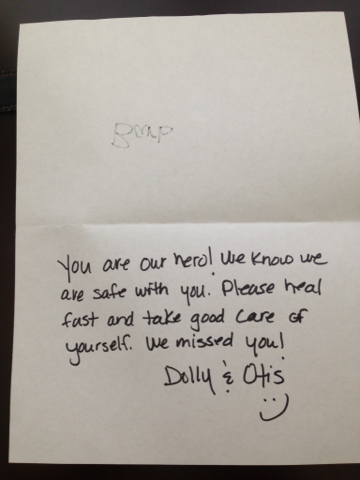 You are our hero! We know we
are safe with you. Please heal
fast and take good care of
yourself. We missed you!
Dolly & Otis